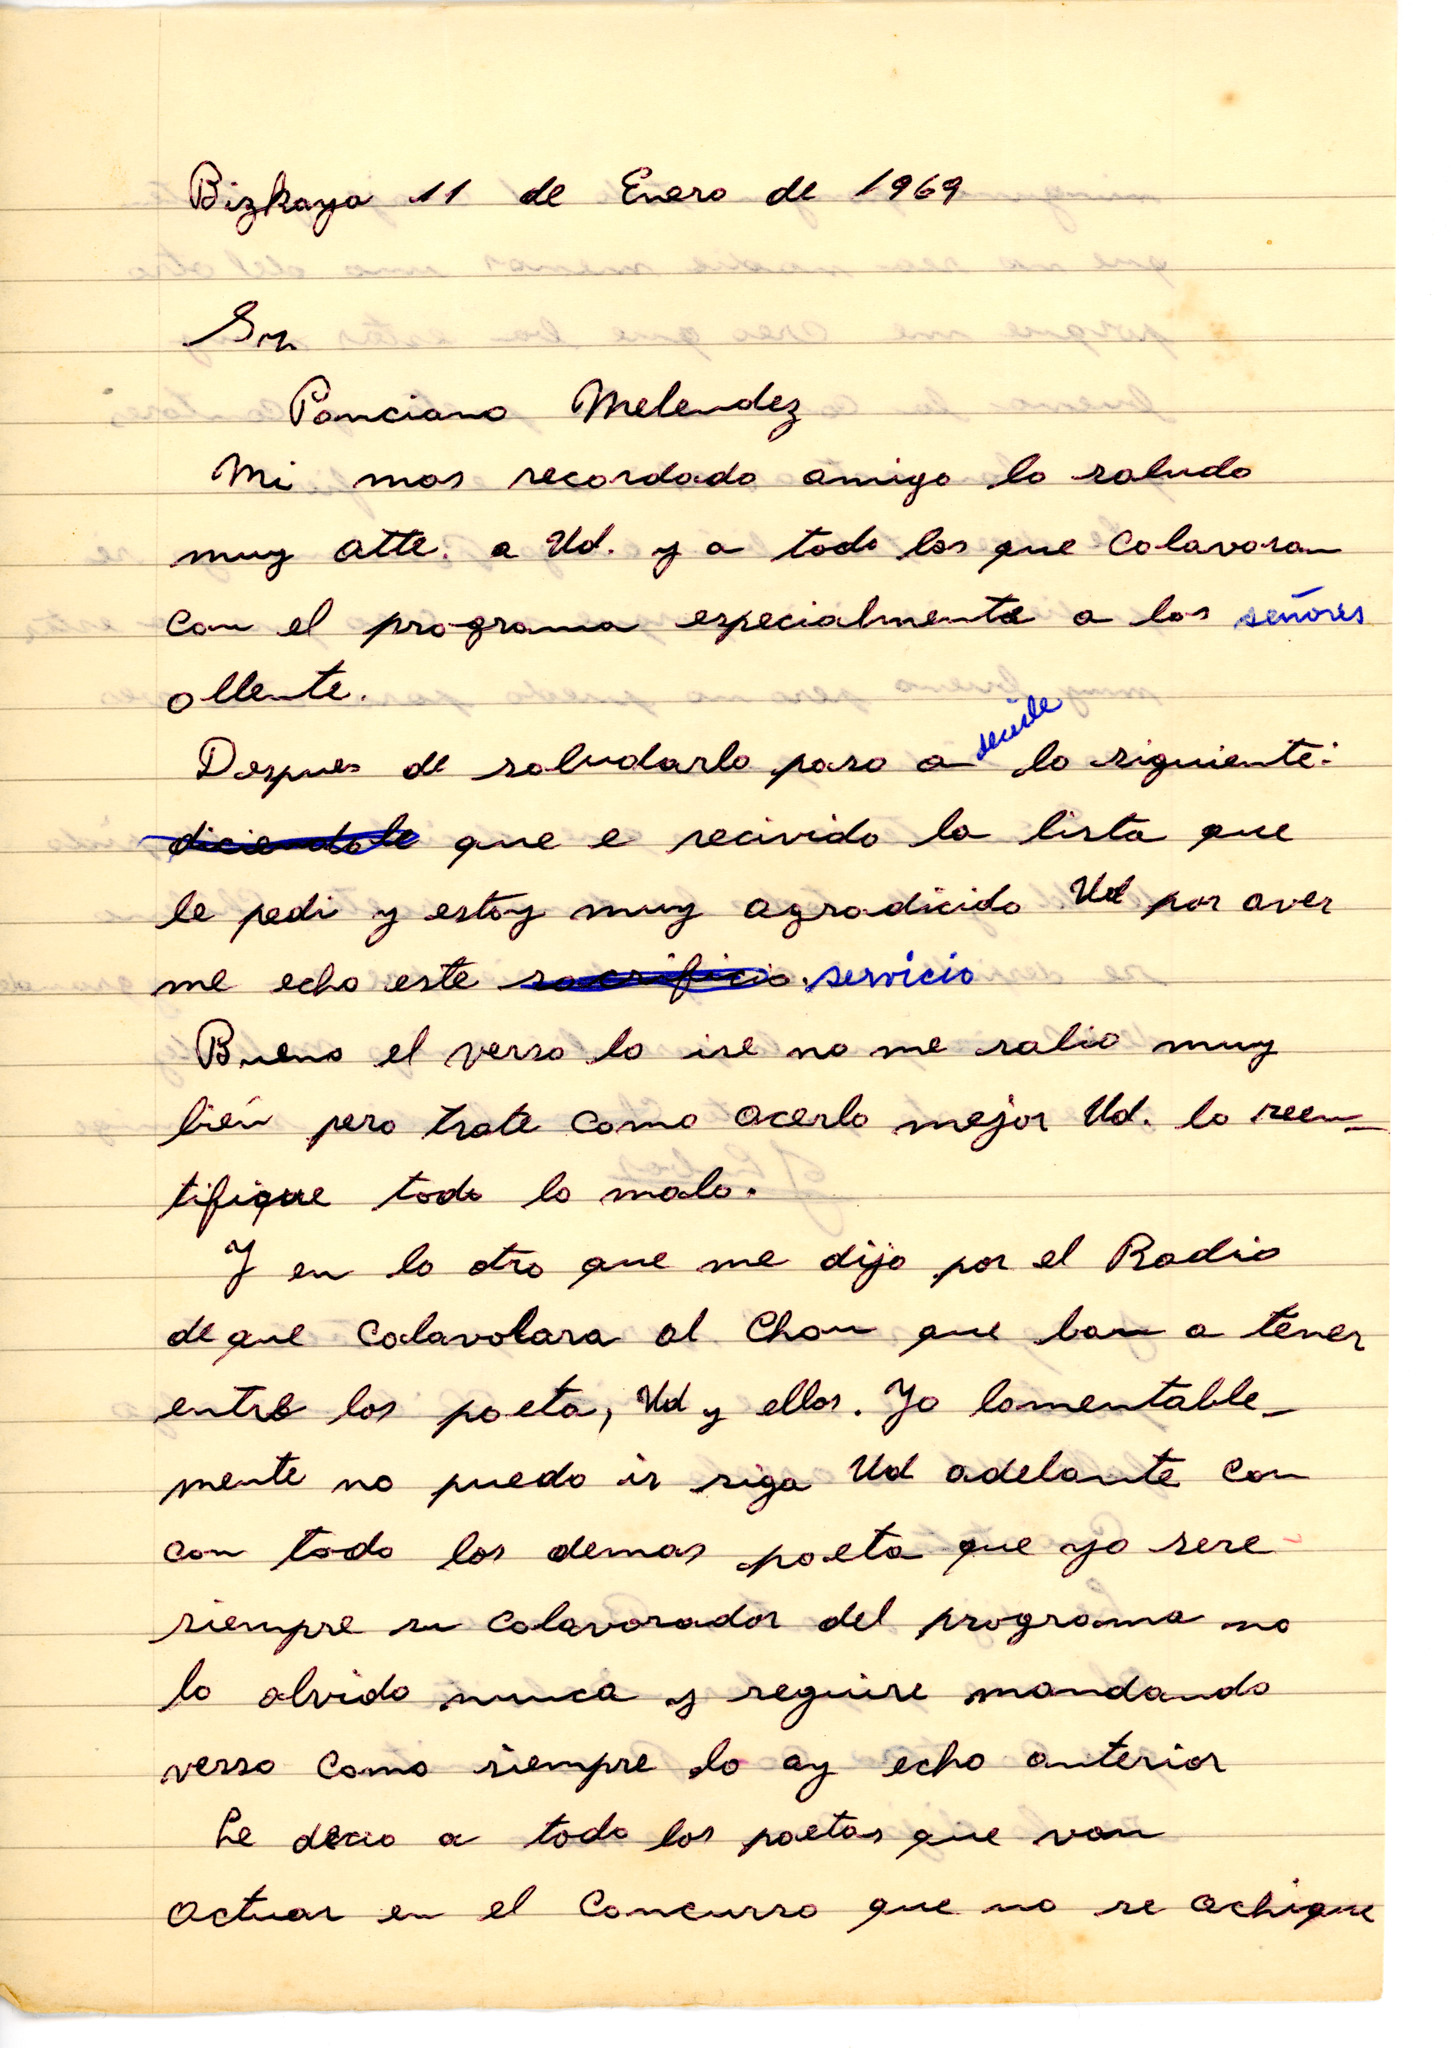 Bizkaya 11 de Enero de 1969
Sr.
Ponciano Melendez
Mi mas recordado amigo lo saludo
muy atte. a Ud. y a todo los que colavoran
con el programa especialmente a los señores
ollente.
Despues de saludarlo paso a decirle lo siguiente:
diciendole que e recivido la lista que
le pedi y estoy muy agradicido Ud por aver
me echo este sacrificio. servicio
Bueno el verso lo ise no me salio muy
bien pero trate como acerlo mejor Ud. lo reen-
tifique todo lo malo.
Y en lo otro que me dijo por el Radio
de que colavolara al Chou que ban a tener
entre los poeta, Ud y ellos. Yo lamentable-
mente no puedo ir siga Ud adelante con
con todo los demas poeta que yo sere
siempre su colavorador del programa no
lo olvido nunca y seguire mandando
verso como siempre lo ay echo anterior
Le deceo a todo los poetas que van
actuar en el concurso que no se achique